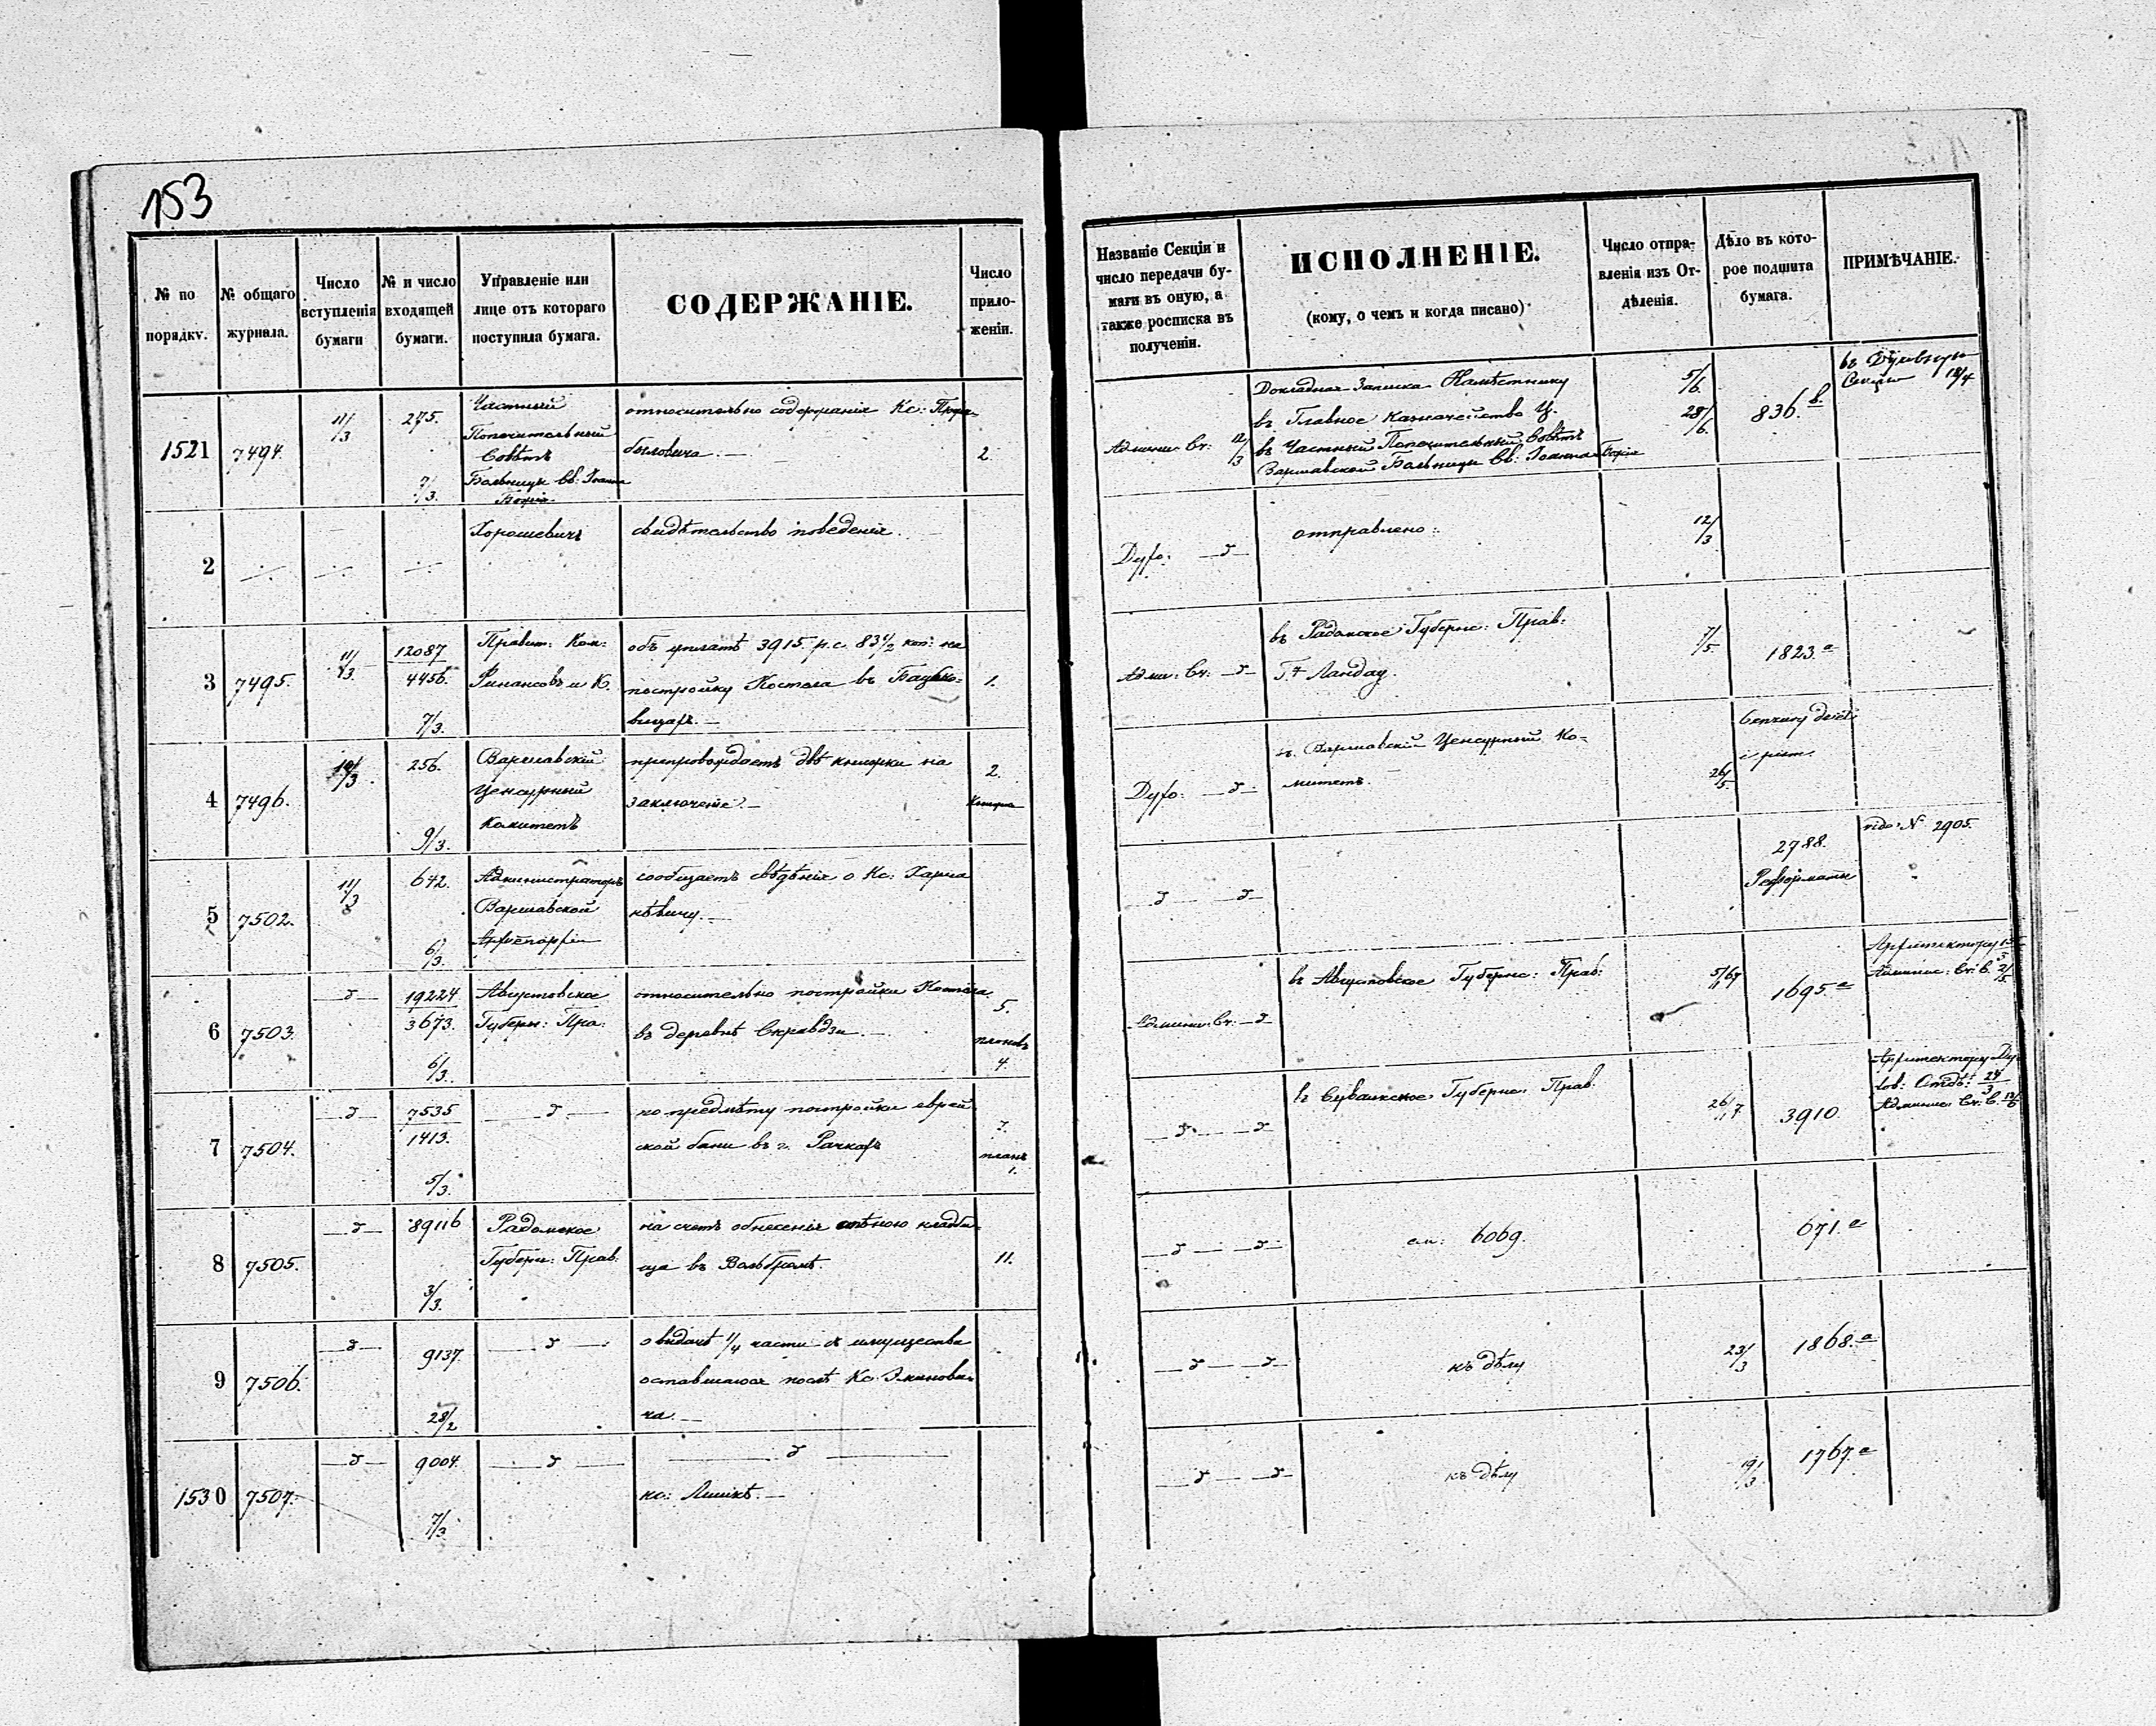 153
№ по порядку.
№ общаго журнала.
Число вступленія бумаги
№ и число входящей бумаги.
Управленіе или лице отъ котораго поступила бумага.
СОДЕРЖАНІЕ.
Число приложеніи.
Названіе Секціи и число передачи бумаги въ оную, а также росписка въ полученіи.
ИСПОЛНЕНІЕ.
(кому, о чемъ и когда писано)
Число отправленія изъ Отдѣленія.
Дѣло въ которое подшита бумага.
ПРИМѢЧАНІЕ.
1521
7494.
11/3
275.
7/3.
Частный
Попечительный
Совѣтъ
Больницы Св: Іоанна
Божія
относительно содержанія Кс:
2.
Админи: Сч: 12/3
Докладная Записка Намѣстнику
въ Главное Казначейство Ц.
въ Частный Попечительный Совѣтъ
Варшавской Больницы Св: Іоанна Божія
5/6.
28/6.
836. b.
въ Духовную
Секцію 18/4
2
Хорошевичъ
свидѣтельство поведенія.
Духо: —д—
отправлено:
12/3
3
7495.
11/3.
12087
4456.
7/3.
Правит: Ком:
Финансовъ и К.
объ уплатѣ 3915 р.с. 83 1/2 коп: на
постройку Костела въ
вицахъ.—
1.
Адми: Сч: —д—
въ Радомское Губерн: Прав:
Г. Ландау.
7/5.
1823. a
4
7496.
256.
9/3.
Варшавскій
Цензурный
Комитетъ
препровождаетъ двѣ книжки на
заключеніе.—
2.
Духо: —д—
въ Варшавскій Цензурный Ко-
митетъ.
26/5.
5
7502.
11/3
642.
6/3.
Администраторъ
Варшавской
Архіепархіи
сообщаетъ свѣдѣнія о Кс:
—д— —д—
2788.
Реформаты
vide № 2905.
6
7503.
—д—
19224
3673.
6/3.
Августовское
Губерн: Пра:
относительно постройки Костела
въ деревнѣ Скравдзи.—
5.
плановъ
4.
Админи: Сч: —д
въ Августовское Губернс: Прав:
1695. a
Архитектору
Админис: Сч: С. 2/5.
7
7504.
—д—
7535
1413.
5/3.
—д—
по предмѣту постройки еврей
ской бани въ г. Рачкахъ
7.
планъ
1.
—д— —д
въ Сувалкское Губерн: Прав.
3910.
Архитектору Ду
хов: Отдѣ: 24/3
Админис: Сч: С.
8
7505.
—д—
89116
3/3.
Радомское
Губерн: Прав:
на счетъ обнесенія стѣною кладби-
ща въ Вольбромѣ.
11.
—д— —д—
см: 6069.
671. a
9
7506.
—д—
9137
28/2
—д—
о выдачѣ 1/4 части имущества
оставшагося послѣ Кс:
ча.—
—д— —д—
къ дѣлу
23/3
1868. a
1530
7507.
—д—
9004.
7/3
—д—
—д—
кс:
—д— —д—
къ дѣлу
19/3
1767. a